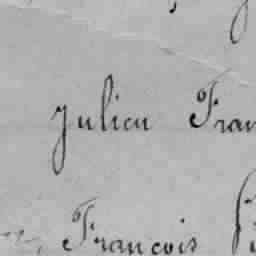 Julien Fran
François